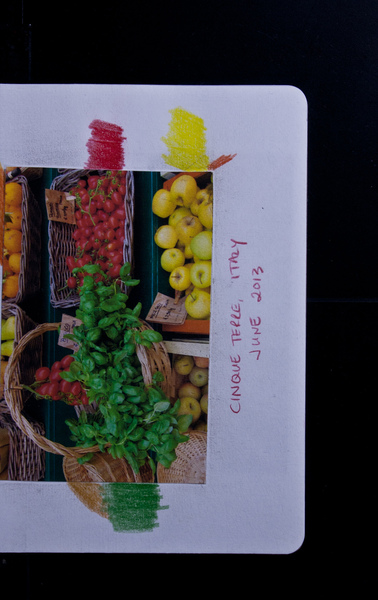 CINQUE TERRE, ITALY
JUNE 2013